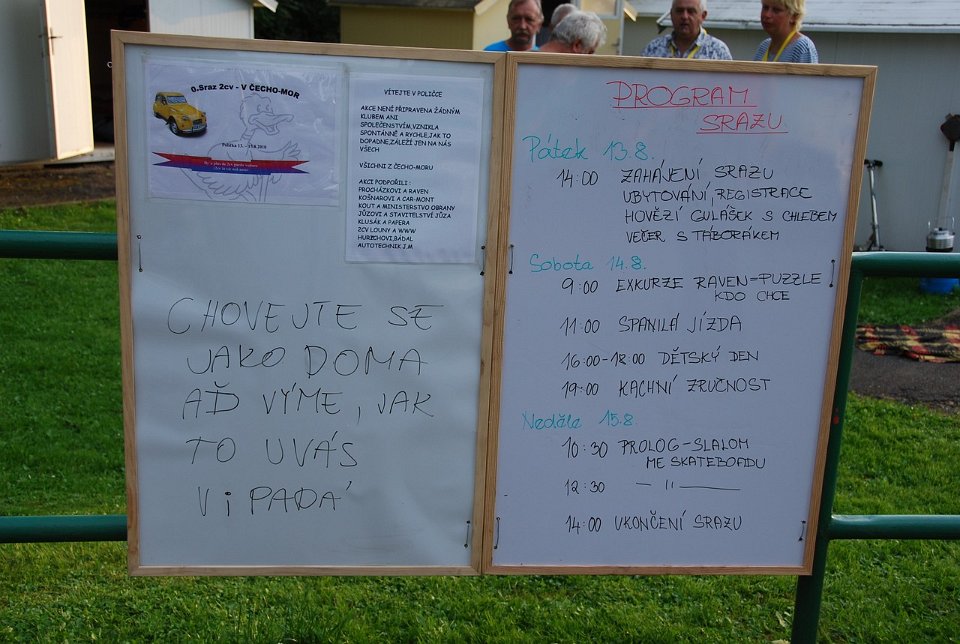 0.Sraz 2cv - V ČECHO-MOR
Polička 13. - 15.8.2010
VÍTEJTE V POLIČCE
AKCE NENÍ PŘIPRAVENA ŽÁDNÝM
KLUBEM ANI
SPOLEČENSTVÍM,VZNIKLA
SPONTÁNNĚ A RYCHLE,JAK TO
DOPADNE,ZÁLEŽÍ JEN NA NÁS
VŠECH
VŠICHNI Z ČECHO-MORU
AKCI PODPOŘILI :
PROCHÁZKOVI A RAVEN
KOŠNAROVI A CAR-MONT
KOUT A MINISTERSTVO OBRANY
JŮZOVI A STAVITELSTVÍ JŮZA
KLUSÁK A PAPERA
2CV LOUNY A WWW
HURYCHOVI,BÁDAL
AUTOTECHNIK J.M
CHOVEJTE SE
JAKO DOMA
AĎ VÝME, JAK
TO UVÁS
ViPADÁ
PROGRAM
SRAZU
Pátek 13.8.
14:00 ZAHÁJENÍ SRAZU
UBYTOVÁNÍ, REGISTRACE
HOVĚZÍ GULÁŠEK S CHLEBEM
VEČER S TÁBORÁKEM
Sobota 14.8.
9:00 EXKURZE RAVEN=PUZZLE
KDO CHCE
11:00 SPANILÁ JÍZDA
16:00-18:00 DĚTSKÝ DEN
19:00 KACHNÍ ZRUČNOST
Neděle 15.8.
10:30 PROLOG-SLALOM
ME SKATEBOADU
12:30 — 11 —
14:00 UKONČENÍ SRAZU